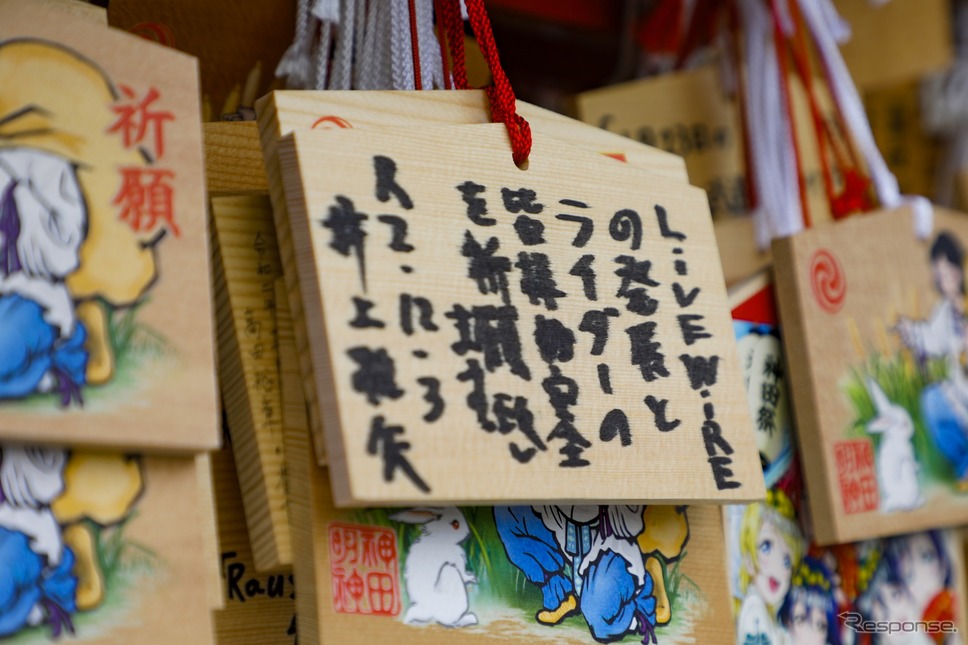 祈願
LiVEWiRE
の発展と
ライダーの
皆様の安全
を祈願致し
ます
R2.12.3
井上雅矢
神田
明神
神田
明神
神田祭
Response.